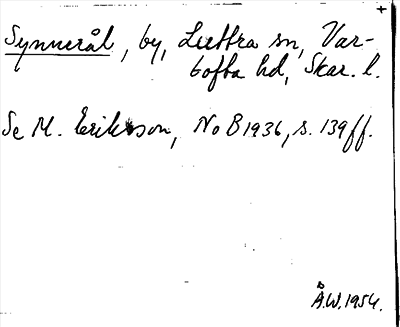 +
Synnerål, by, Luttra sn, Var-
tofta hd, Skar. l.
Se M. Eriksson, NoB 1936, s. 139 ff.
Å.W. 1954.